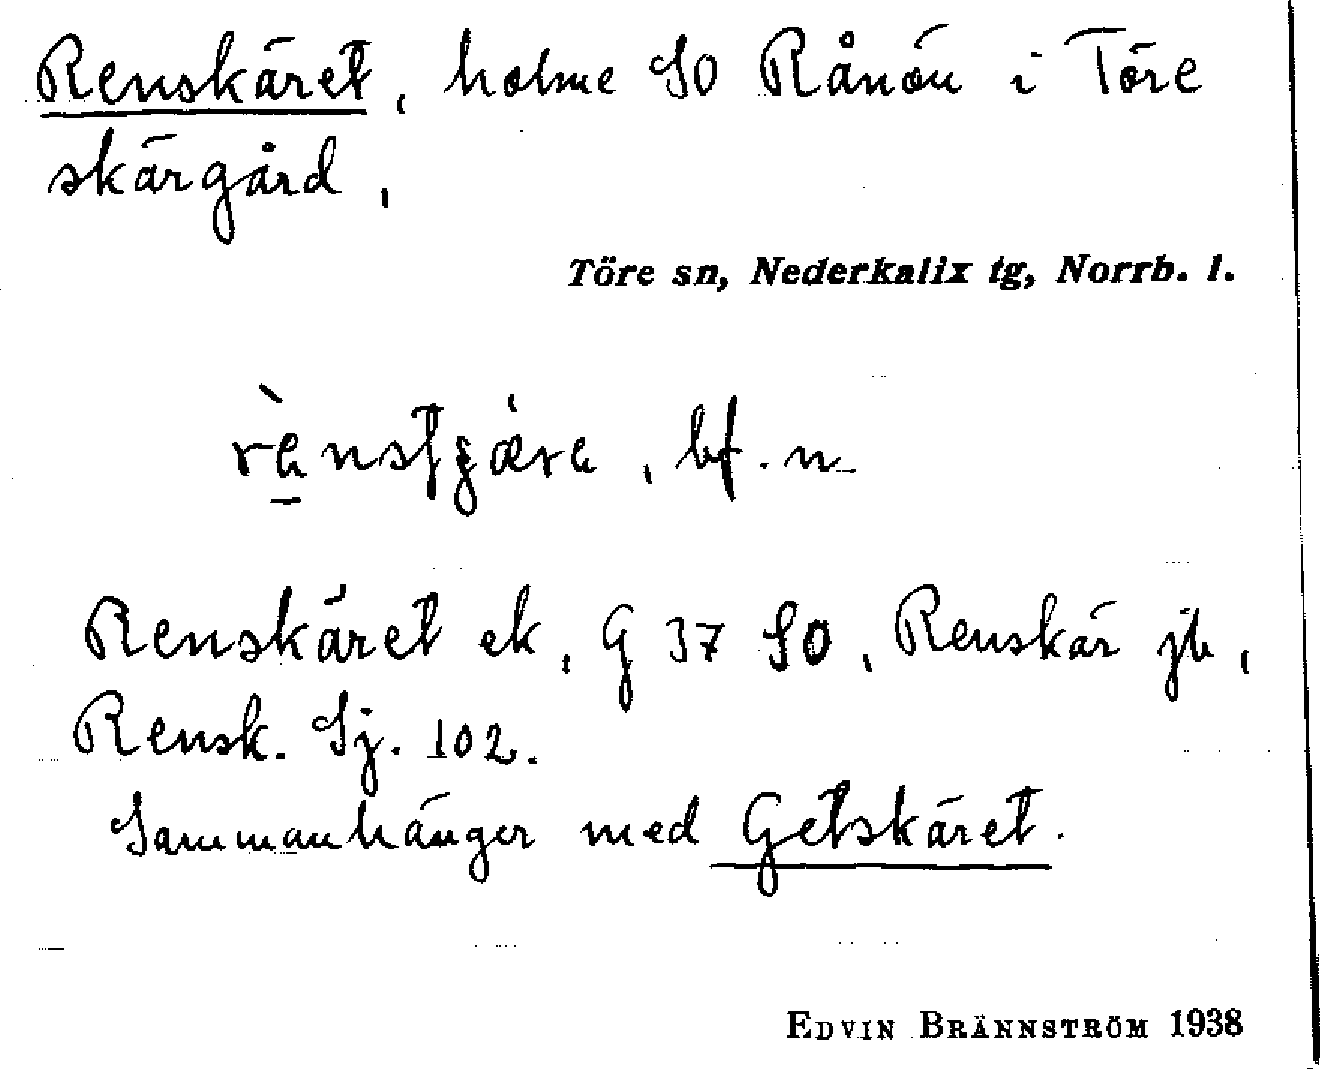 Renskäret, holme SO Rånön i Töre
skärgård,
Töre sn, Nederkalix tg, Norrb. l.
bf. n
Renskäret ek, G 37 SO, Renskär jb,
Rensk. Sj. 102.
Sammanhänger med Getskäret.
EDVIN BRÄNNSTRÖM 1938